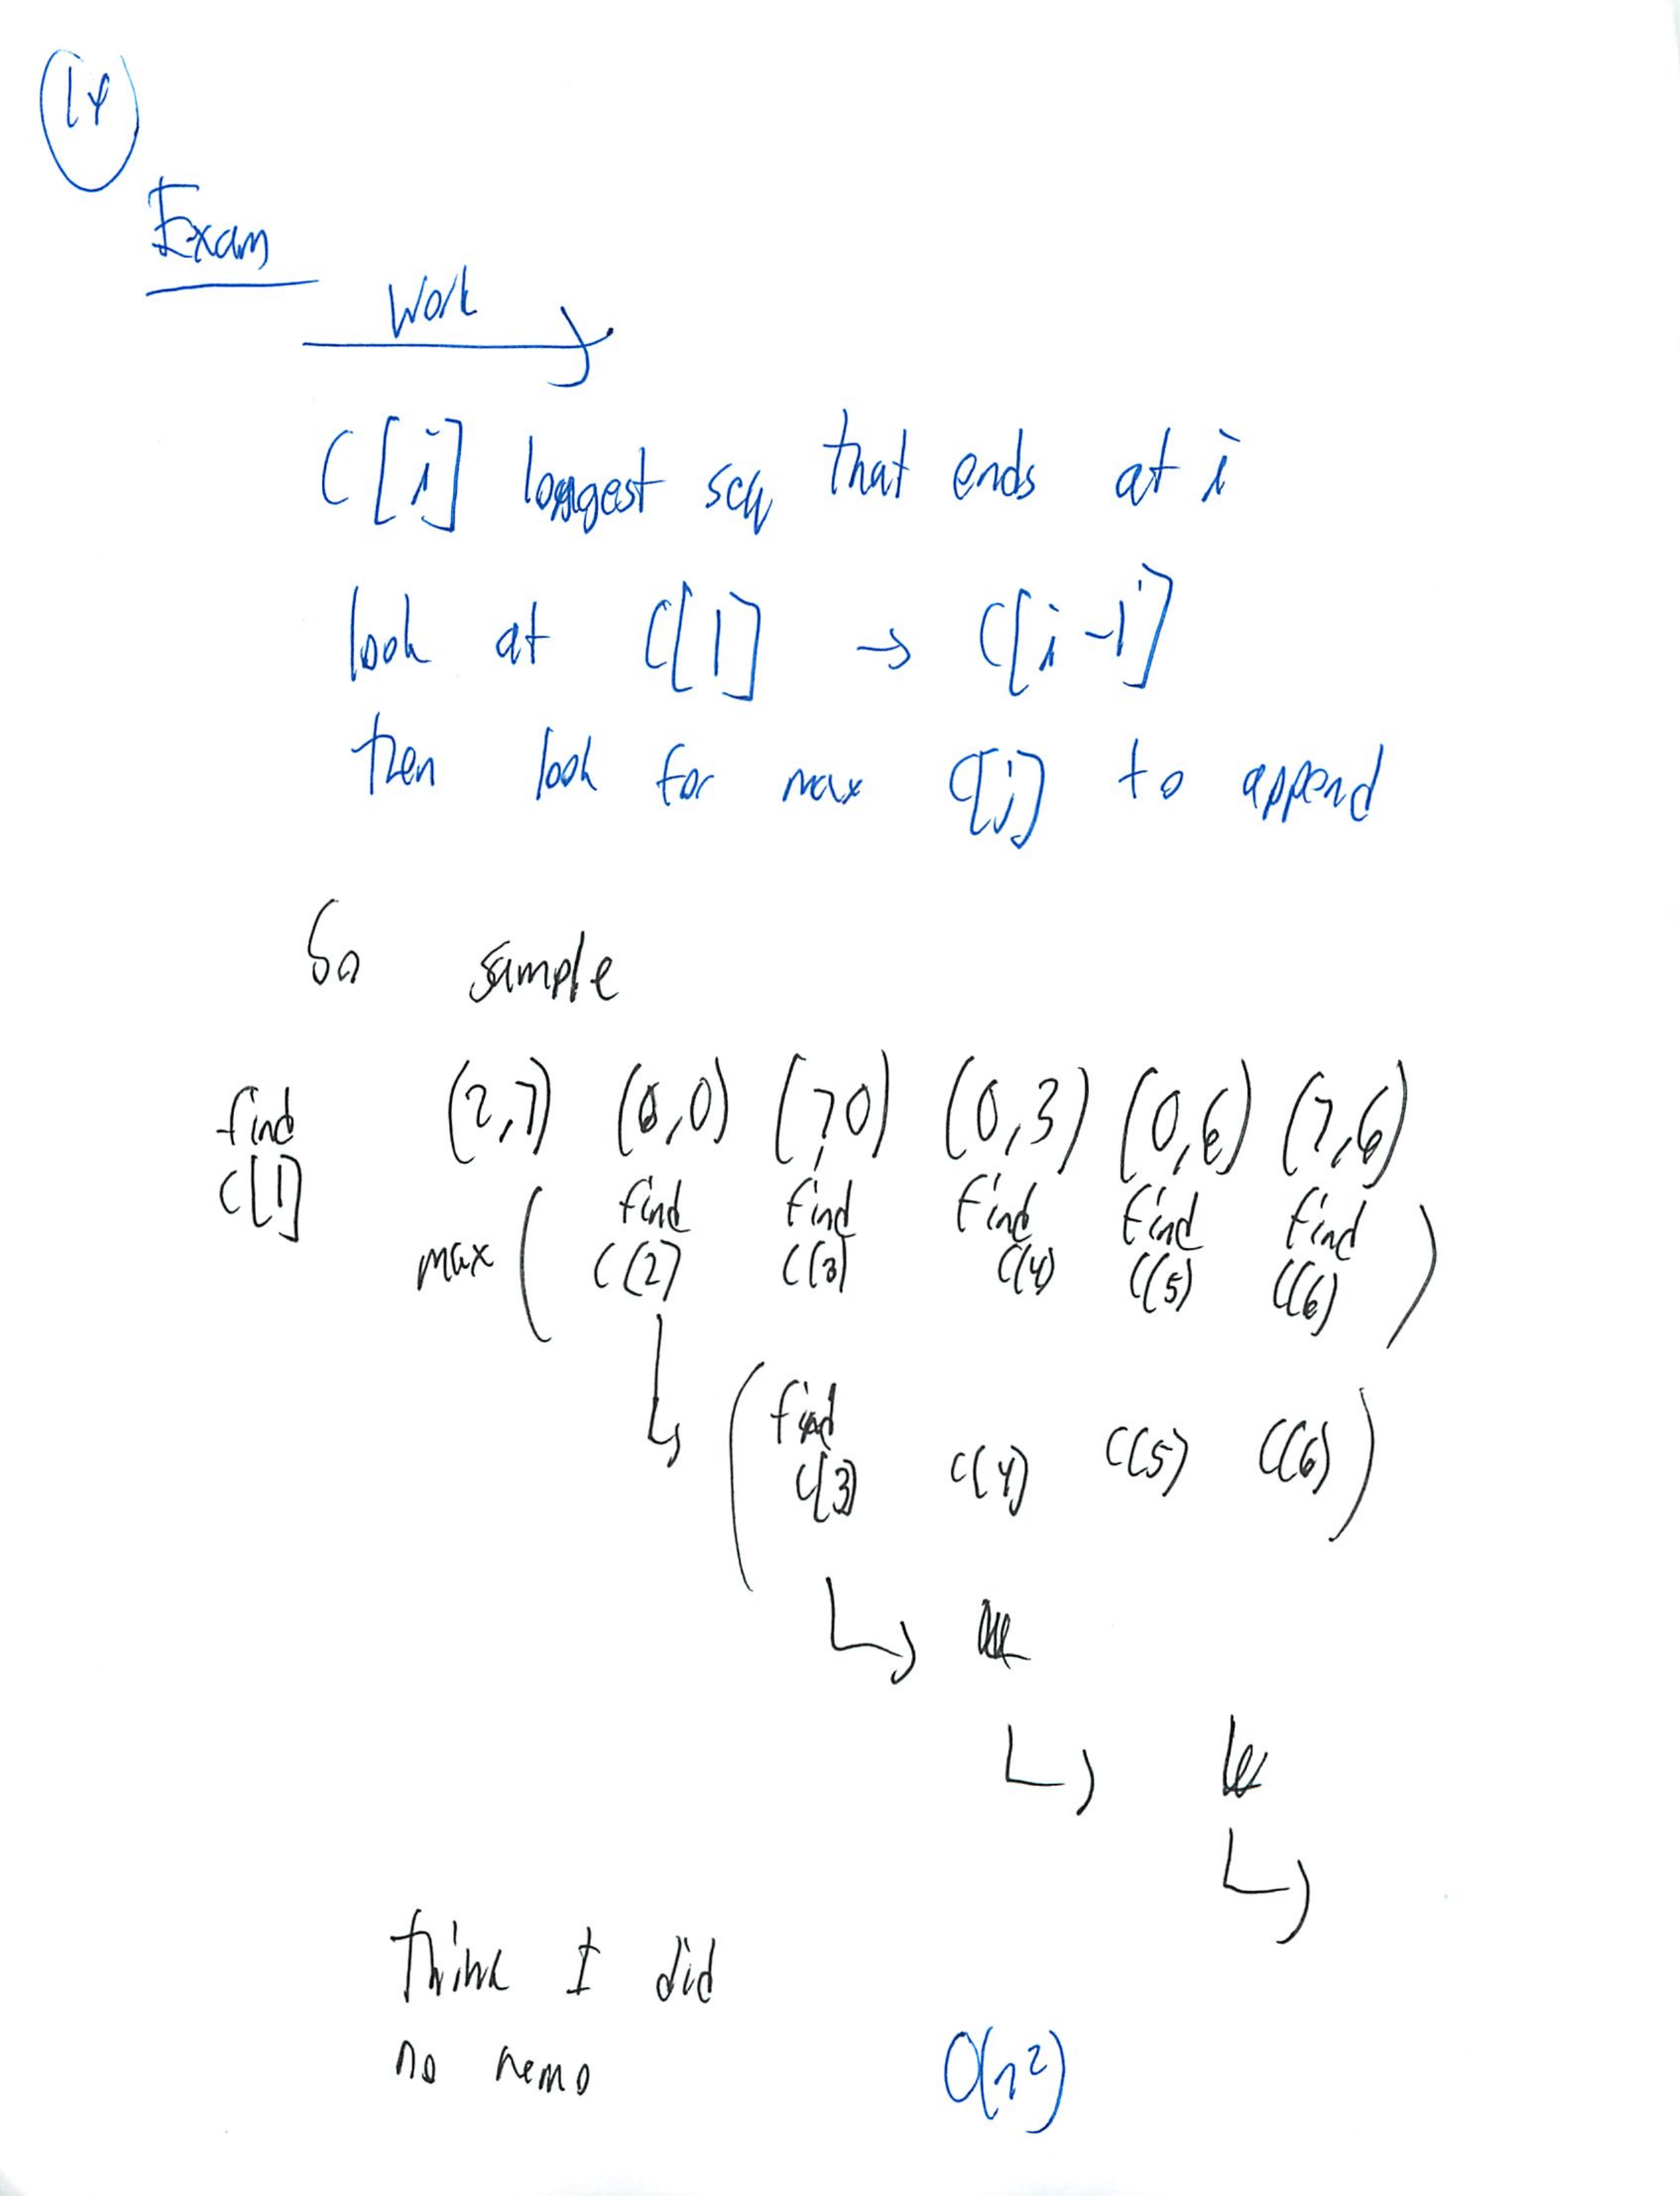 14
Exam
Work
C[i] longest seq that ends at i
look at C[1] → C[i-1]
then look for max C[j] to append
So sample
find (2,7) (6,0) (7,0) (0,3) (0,6) (7,6)
C[1] find find find find find
max ( C(2) C(3) C(4) C(5) C(6) )
( find
C[3] C(4) C(5) C(6) )
Think I did
no memo O(n²)